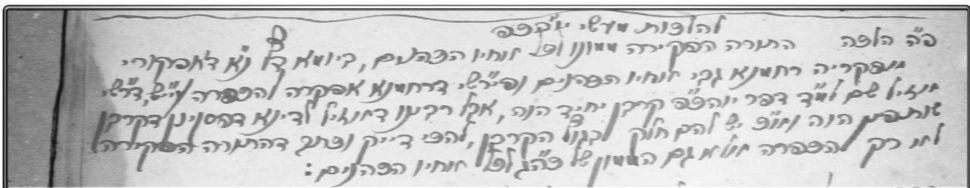 להלכות מעשי יוהכפ
פ״ה הלכה התורה הפקירה ממונו וכל אחיו הכהנים, ביומא דף נ״א דאפקורי
מפקריה רחמנא גבי אחיו הכהנים ופירש״י דרחמנא אפקרה להכפרה דרש״י
אזיל שם למ״ד דפר יוהכ״פ קרבן יחיד הוה, אבל רבינו דאזיל לדינא דקרבן
שותפין הוה יש להם חלק בגוף הקרבן, להכי דייק וכתב דהתורה הפקירה
לא רק להכפרה אלא גם הממון של כה״ג לכל אחיו הכהנים: